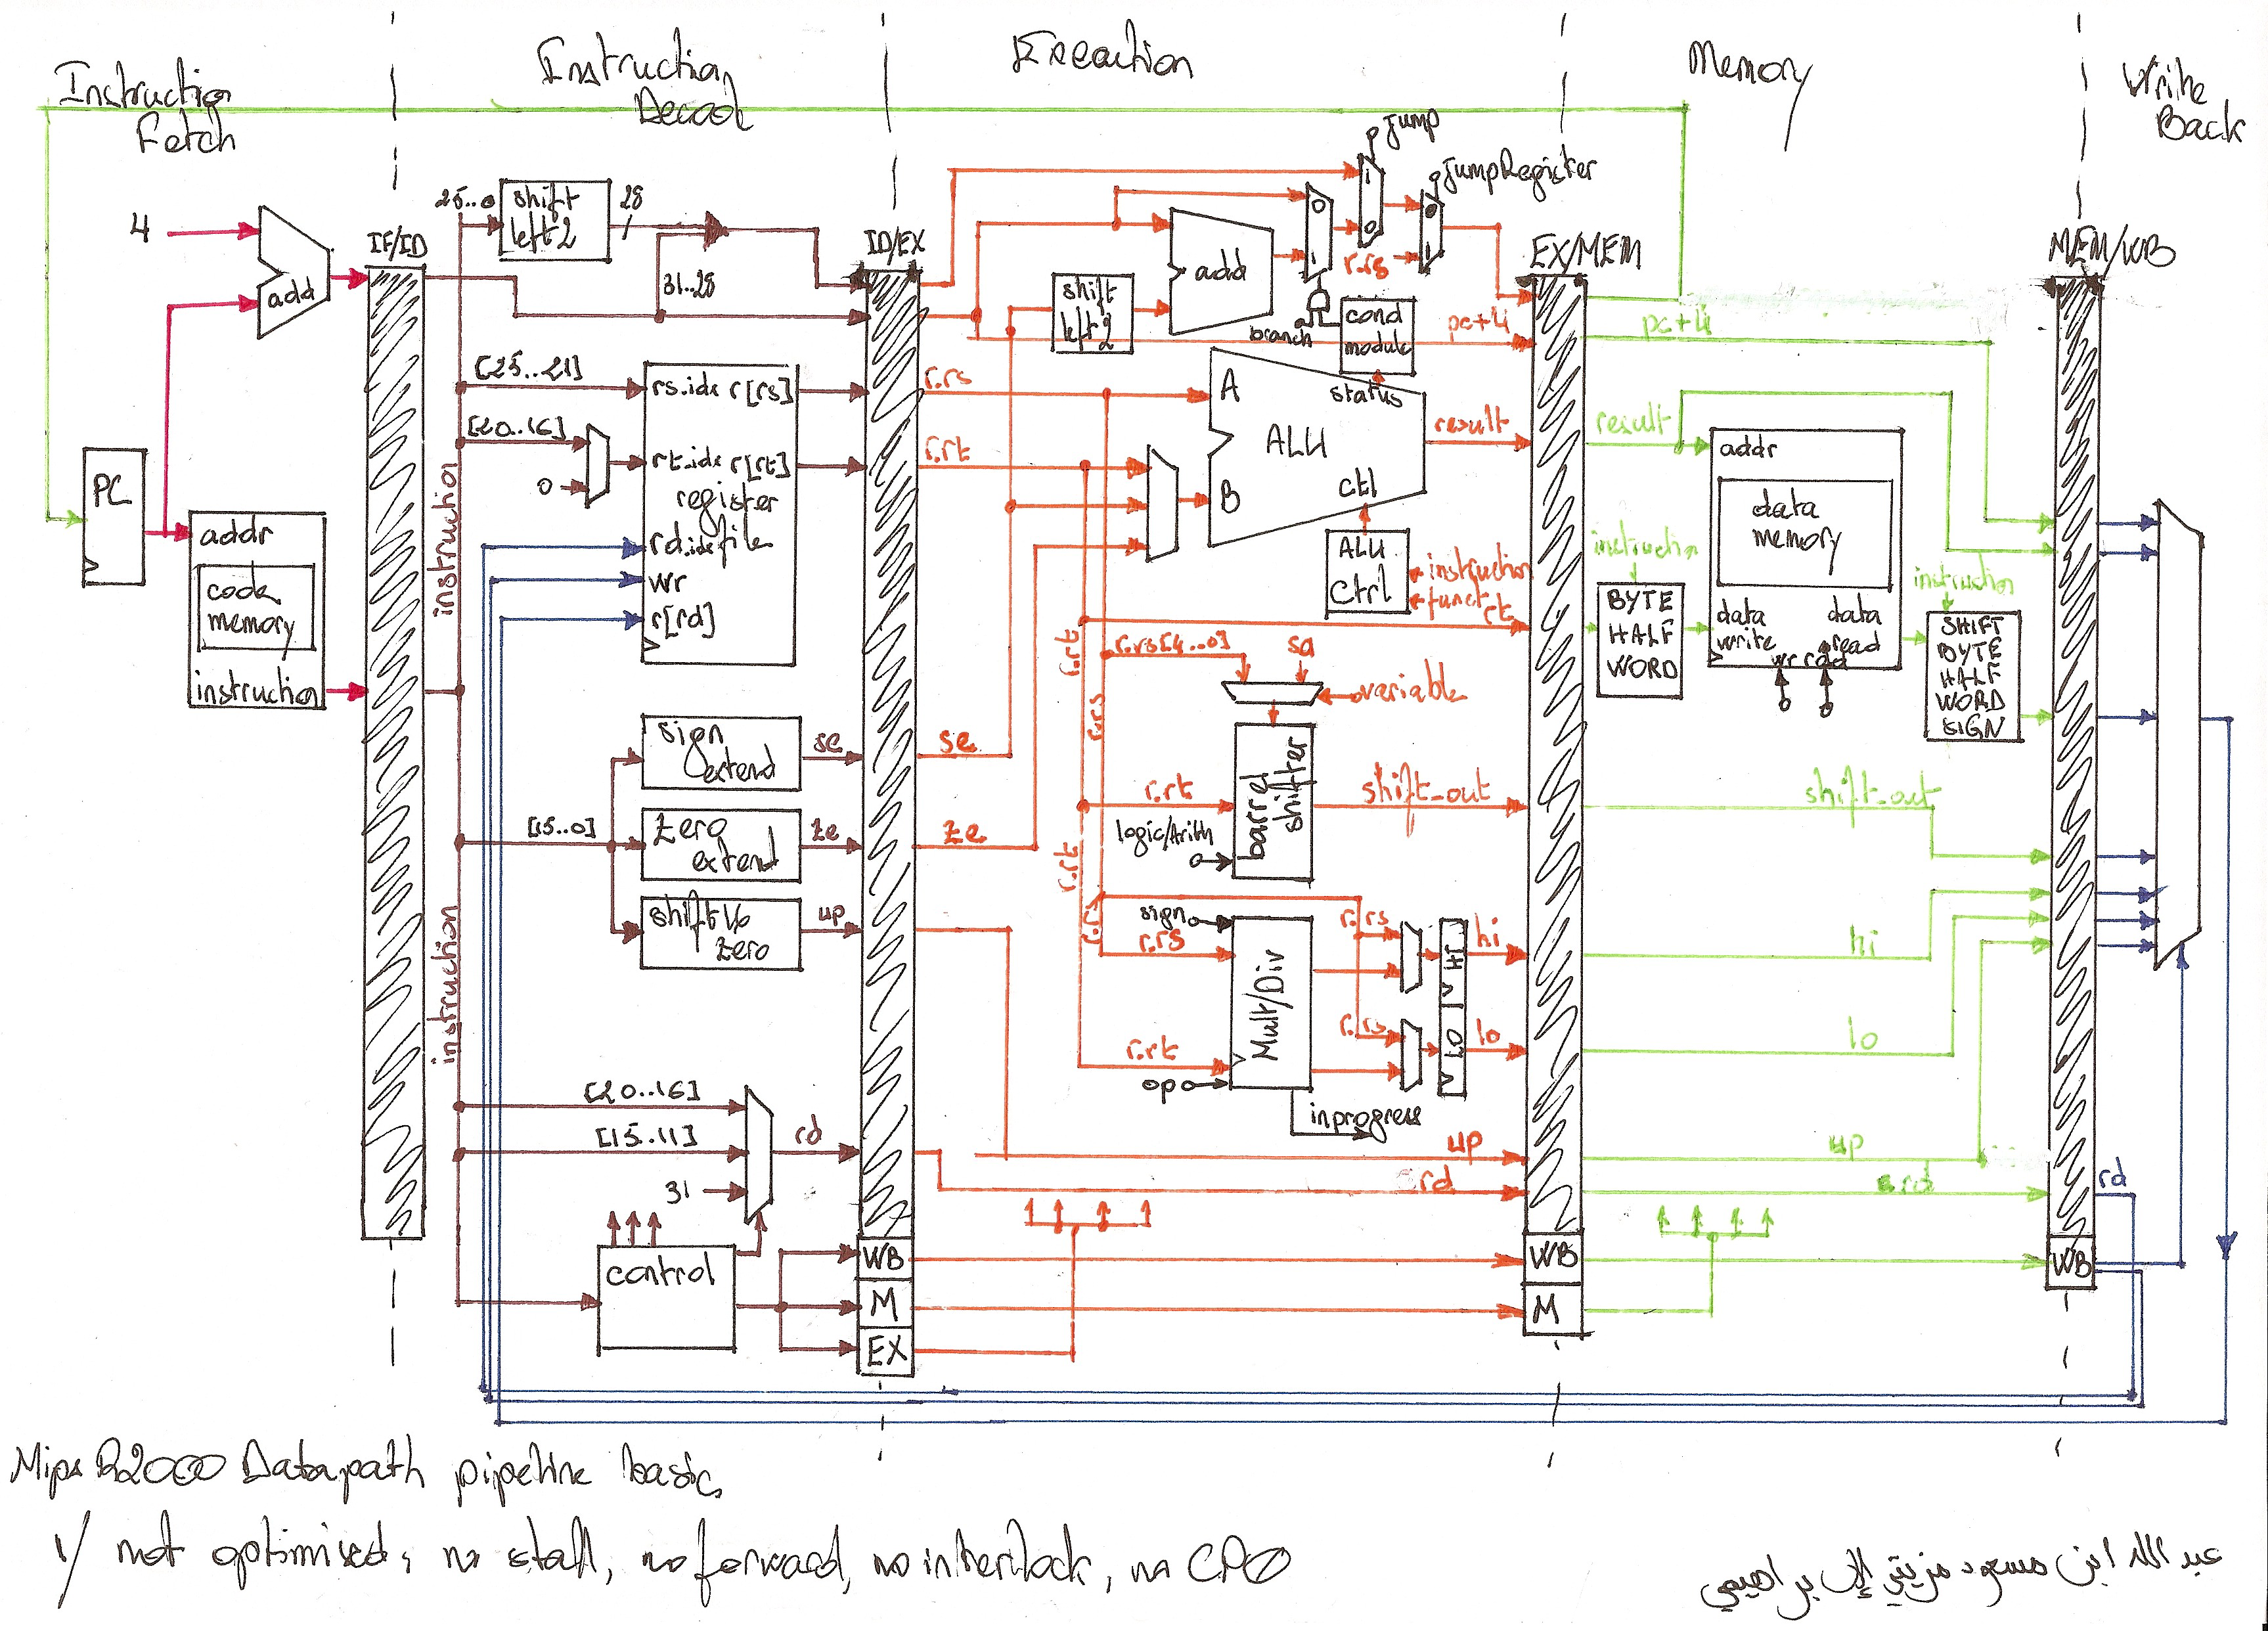 Instruction
Fetch
Instruction
Decod
Execution
Memory
Write
Back
4
add
PC
addr
code
memory
instruction
IF/ID
instruction
instruction
25..0
shift
left2
28
31..28
[25..21]
[20..16]
0
rs.idx r[rs]
rt.idx r[rt]
register
file
rd.idx
wr
r[rd]
sign
extend
se
[15..0]
zero
extend
ze
shift16
zero
up
[20..16]
[15..11]
31
rd
control
ID/EX
WB
M
EX
jump
jumpRegister
0
1
1
0
0
1
r.rs
shift
left2
add
branch
cond
module
pc+4
r.rs
r.rt
A
B
ALU
status
ctl
result
ALU
Ctrl
instruction
funct
rt
r.rt
r.rs
r.rs[4..0]
sa
variable
se
ze
r.rt
logic/Arith
barrel
shifter
shift_out
r.rt
r.rs
sign
r.rs
r.rt
op
Mult/Div
inprogress
r.rs
r.rs
HI
LO
hi
lo
up
rd
EX/MEM
WB
M
pc+4
result
addr
data
memory
data
write
data
read
wr
instruction
BYTE
HALF
WORD
instruction
SHIFT
BYTE
HALF
WORD
SIGN
shift_out
hi
lo
up
rd
MEM/WB
WB
rd
Mips R2000 Datapath pipeline basic
1/ not optimised, no stall, no forward, no interlock, no CP0
عبد الله ابن مسعود